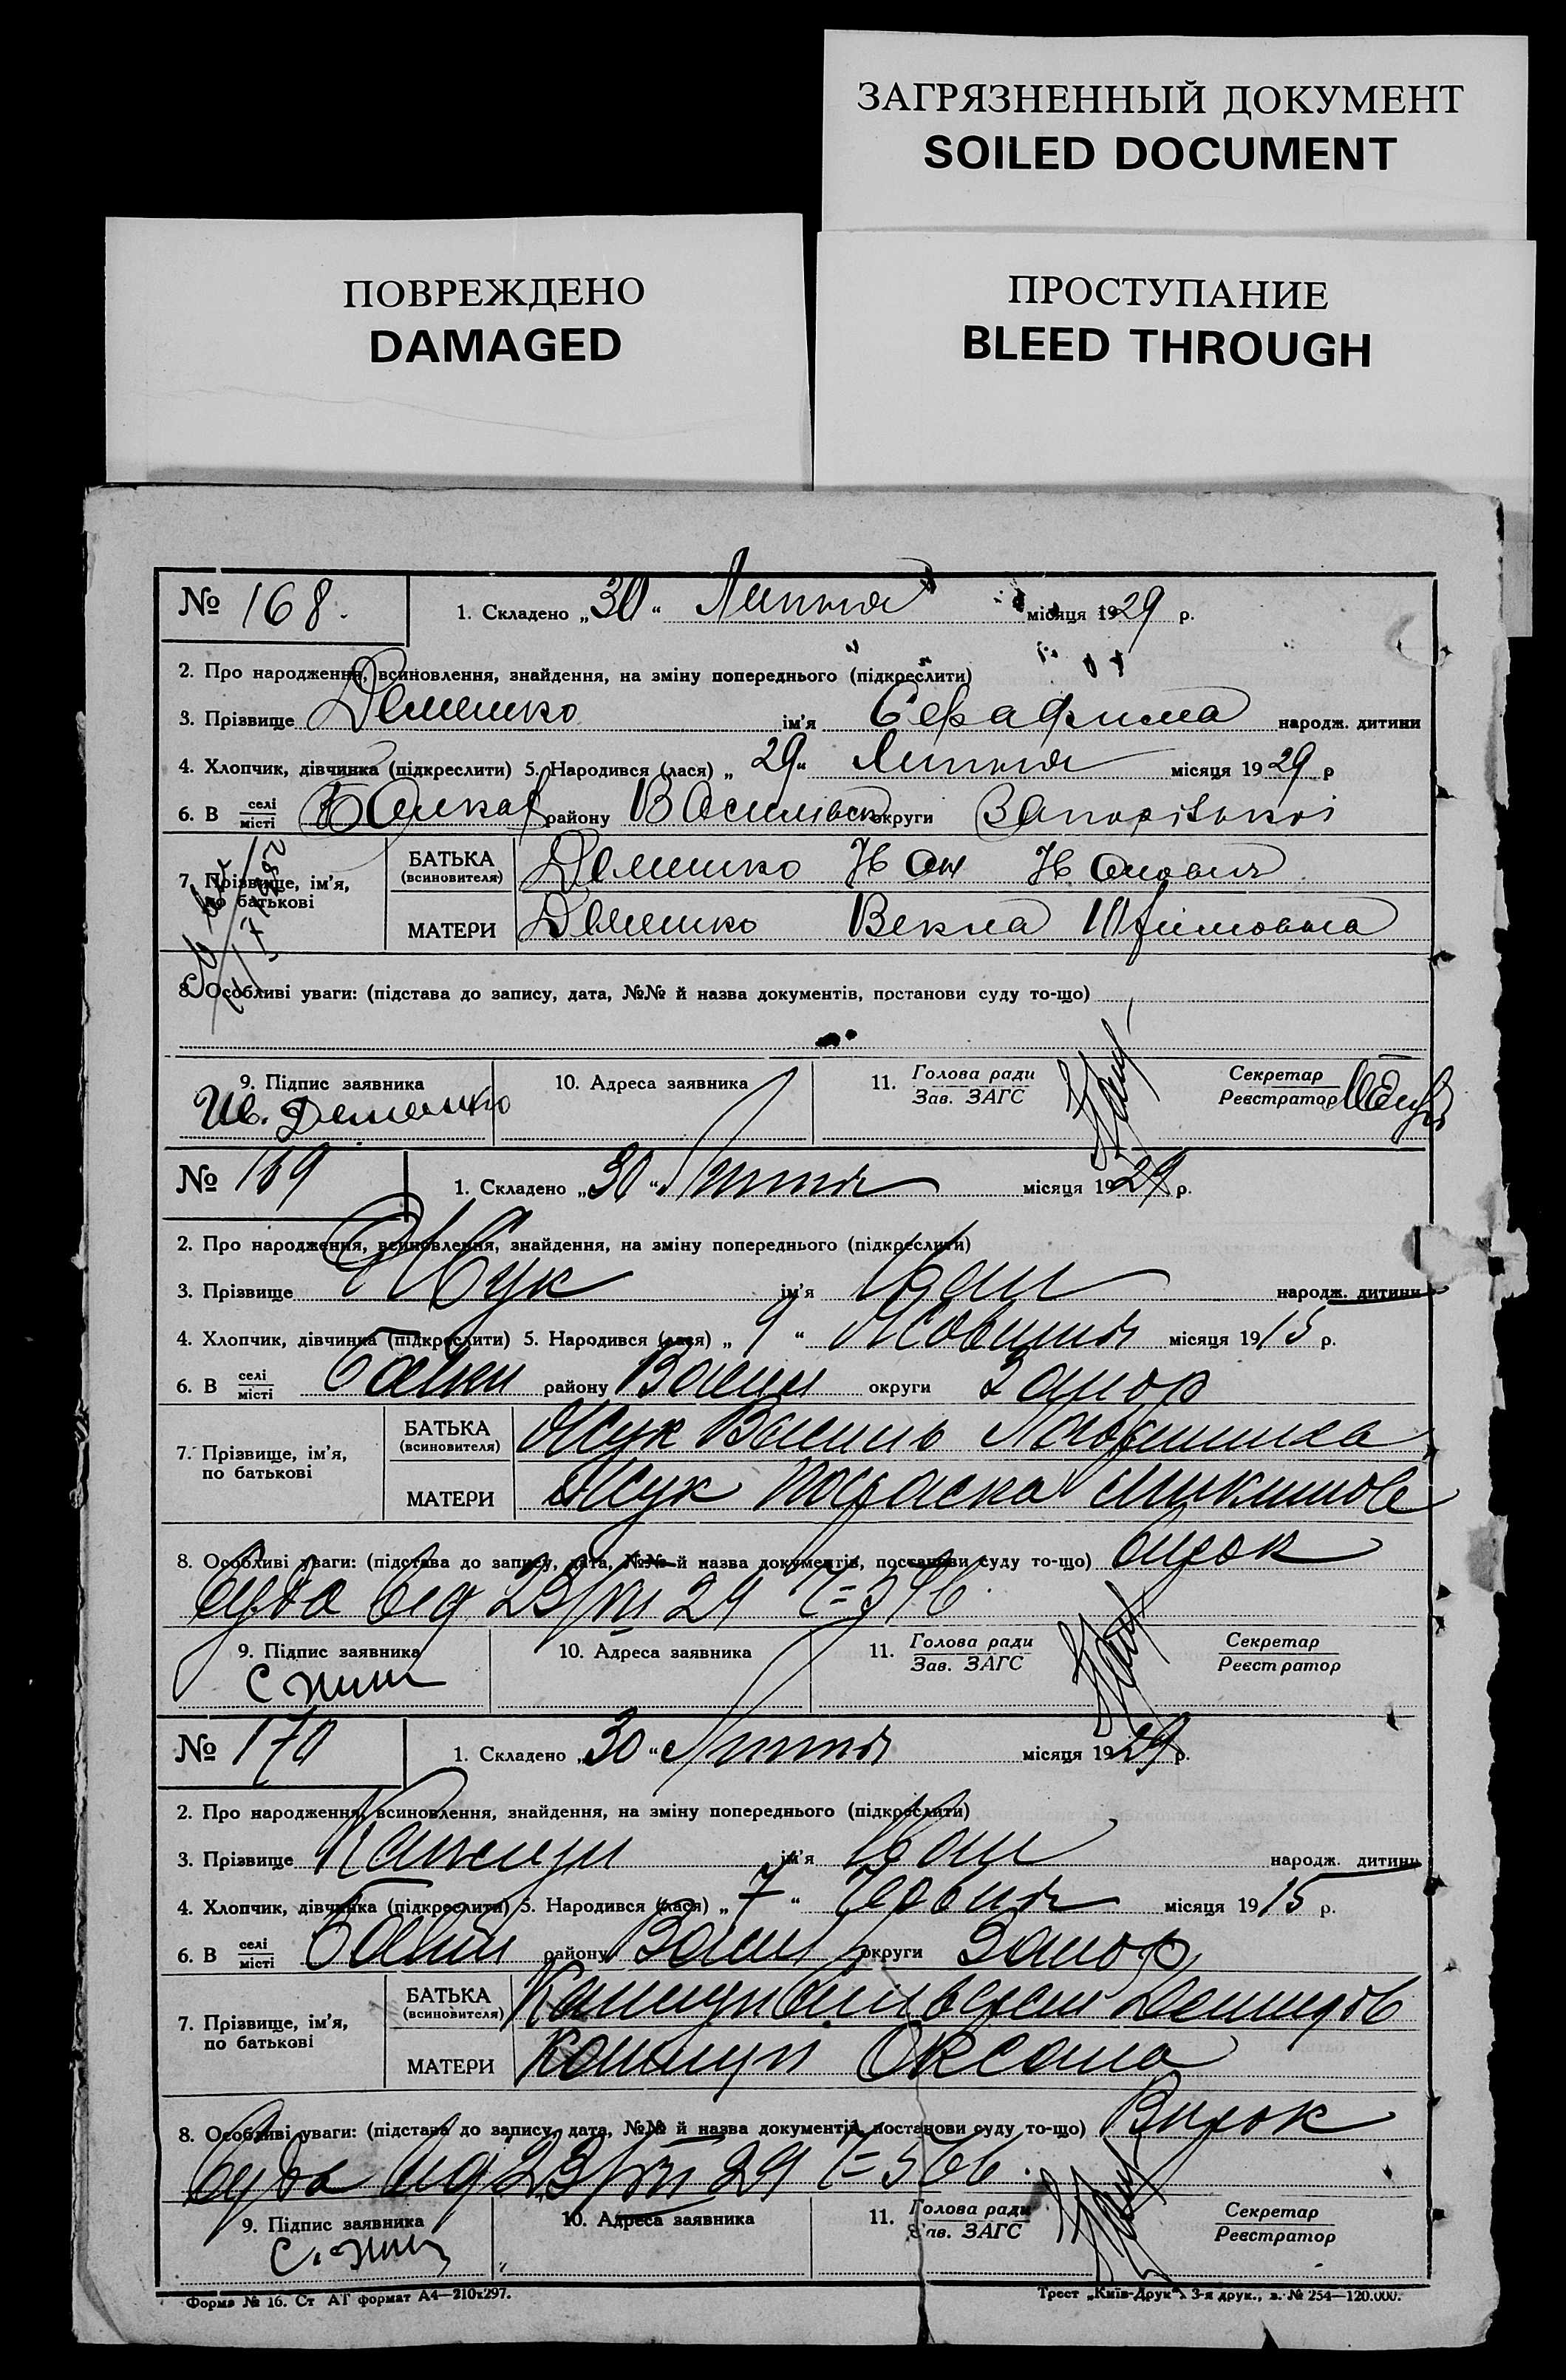 ЗАГРЯЗНЕННЫЙ ДОКУМЕНТ
SOILED DOCUMENT
ПОВРЕЖДЕНО
DAMAGED
ПРОСТУПАНИЕ
BLEED THROUGH
№ 168. 1. Складено „30“ Липня місяця 1929 р.
2. Про народження, всиновлення, знайдення, на зміну попереднього (підкреслити)
3. Прізвище Демешко ім'я Серафима народж. дитини
4. Хлопчик, дівчинка (підкреслити) 5. Народився (лася) „29“ Липня місяця 1929 р
6. В селі місті Балках району Василівськ округи Запорізької
7. Прізвище, ім'я, по батькові
БАТЬКА (всиновителя) Демешко Иван Иванович
МАТЕРИ Демешко Векла Юхимовна
8. Особливі уваги: (підстава до запису, дата, №№ й назва документів, постанови суду то-що)
9. Підпис заявника 10. Адреса заявника 11. Голова ради Зав. ЗАГС Секретар Реєстратор
Ив. Демешко
№ 169 1. Складено „30“ Липня місяця 1929 р.
2. Про народження, всиновлення, знайдення, на зміну попереднього (підкреслити)
3. Прізвище Жук ім'я Іван народж. дитини
4. Хлопчик, дівчинка (підкреслити) 5. Народився (лася) „9“ Жовтня місяця 1915 р.
6. В селі місті Балки району Васил округи Запор
7. Прізвище, ім'я, по батькові
БАТЬКА (всиновителя) Жук Василь
МАТЕРИ Жук Параска
8. Особливі уваги: (підстава до запису, дата, №№ й назва документів, постанови суду то-що) Вирок
Суда від 23/VII 29
9. Підпис заявника 10. Адреса заявника 11. Голова ради Зав. ЗАГС Секретар Реєстратор
№ 170 1. Складено „30“ Липня місяця 1929 р.
2. Про народження, всиновлення, знайдення, на зміну попереднього (підкреслити)
3. Прізвище ім'я Іван народж. дитини
4. Хлопчик, дівчинка (підкреслити) 5. Народився (лася) „7“ Червня місяця 1915 р.
6. В селі місті Балки району Васил округи Запор
7. Прізвище, ім'я, по батькові
БАТЬКА (всиновителя)
МАТЕРИ Оксана
8. Особливі уваги: (підстава до запису, дата, №№ й назва документів, постанови суду то-що) Вирок
Суда від 23/VII 29
9. Підпис заявника 10. Адреса заявника 11. Голова ради Зав. ЗАГС Секретар Реєстратор
Форма № 16. Ст АТ формат А4—210х297.
Трест „Київ-Друк“. 3-я друк., з. № 254—120.000.